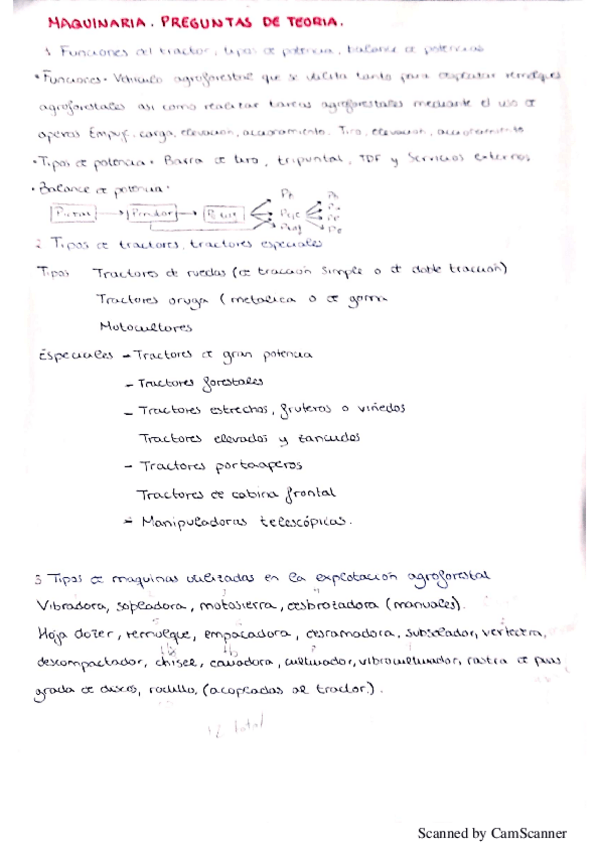 MAQUINARIA. PREGUNTAS DE TEORIA.
1 Funciones del tractor, tipos de potencia, balance de potencias
• Funciones • Vehículo agroforestal que se utiliza tanto para remolques
agroforestales asi como realizar tareas agroforestales mediante el uso de
aperos Empuj. carga, elevacion, accionamiento. Tiro, elevacion, accionamiento
• Tipos de potencia • Barra de tiro, tripuntal, TDF y Servicios externos
• Balance de potencia •
2 Tipos de tractores, tractores especiales
Tipos Tractores de ruedas (de traccion simple o de doble traccion)
Tractores oruga (metalica o de goma
Motocultores
Especiales - Tractores de gran potencia
- Tractores forestales
- Tractores estrechos, fruteros o viñedos
Tractores elevados y tancudos
- Tractores portaaperos
Tractores de cabina frontal
- Manipuladoras telescópicas.
3 Tipos de maquinas utilizadas en la explotación agroforestal
Vibradora, sopladora, motosierra, desbrozadora (manuales).
Hoja dozer, remolque, empacadora, desramadora, subsolador, vertedera,
descompactador, chisel, cavadora, cultivador, vibrocultivador, rastra de puas
grada de discos, rodillo, (acopladas al tractor).
Total
Scanned by CamScanner